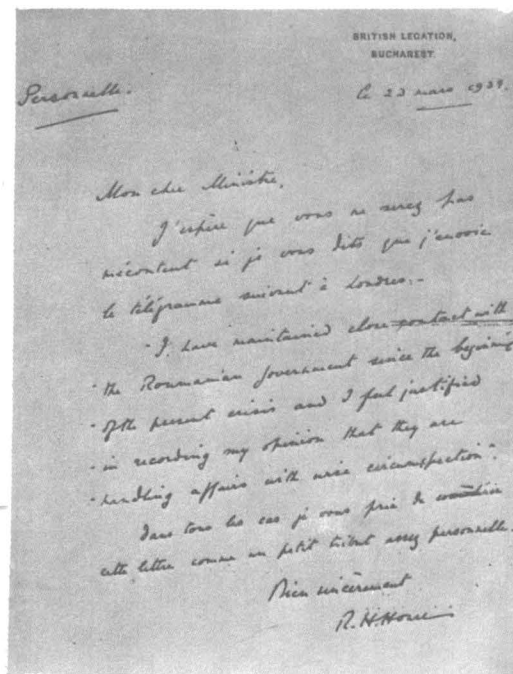 BRITISH LEGATION,
BUCHAREST.
Personnelle.
le 23 mars 1939.
Mon cher Ministre,
J'espère que vous ne serez pas
mécontent si je vous dits que j'envoie
le télégramme suivant à Londres:-
"I have maintained close contact with
"the Roumanian Government since the beginning
"of the present crisis and I feel justified
"in recording my opinion that they are
"handling affairs with wise circumspection".
Dans tous les cas je vous prie de considérer
cette lettre comme un petit tribut assez personnelle.
Bien sincèrement
R.H.Hoare